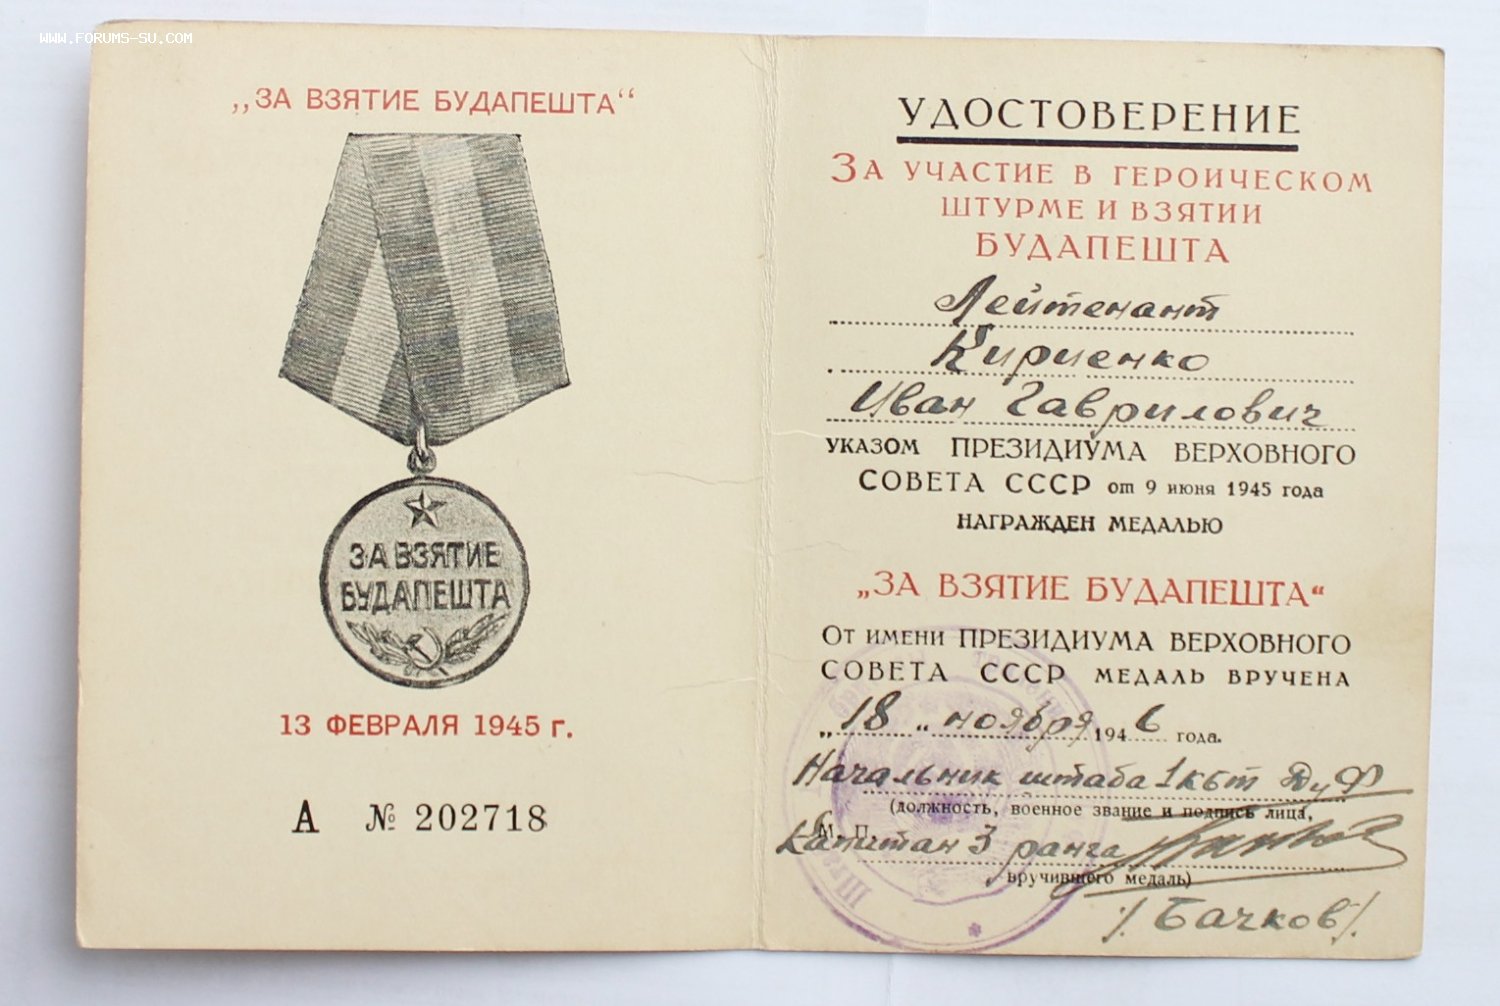 WWW.FORUMS-SU.COM
„ЗА ВЗЯТИЕ БУДАПЕШТА“
ЗА ВЗЯТИЕ
БУДАПЕШТА
13 ФЕВРАЛЯ 1945 г.
А № 202718
УДОСТОВЕРЕНИЕ
ЗА УЧАСТИЕ В ГЕРОИЧЕСКОМ
ШТУРМЕ И ВЗЯТИИ
БУДАПЕШТА
Лейтенант
Кириенко
Иван Гаврилович
УКАЗОМ ПРЕЗИДИУМА ВЕРХОВНОГО
СОВЕТА СССР от 9 июня 1945 года
НАГРАЖДЕН МЕДАЛЬЮ
„ЗА ВЗЯТИЕ БУДАПЕШТА“
ОТ ИМЕНИ ПРЕЗИДИУМА ВЕРХОВНОГО
СОВЕТА СССР МЕДАЛЬ ВРУЧЕНА
„18 „ ноября 1946 года.
Начальник штаба 1 кбт ДуФ
(должность, военное звание и подпись лица,
М. П.
Капитан 3 ранга
вручившего медаль)
/Бачков/.